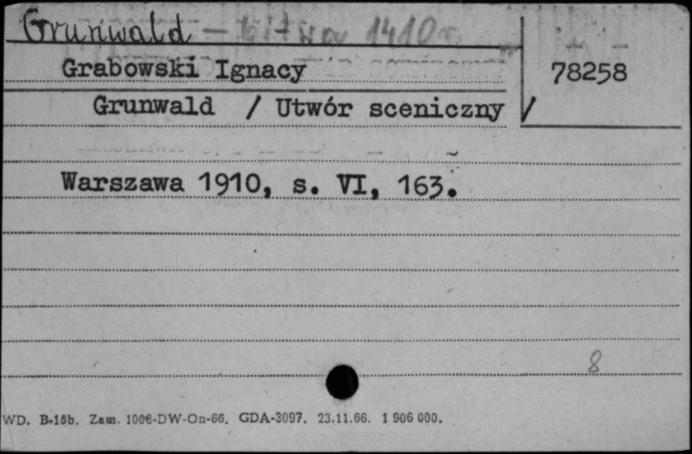 Grunwald - bitwa 1410 r.
Grabowski Ignacy
78258
Grunwald / Utwór sceniczny /
Warszawa 1910, s. VI, 163.
8
WD. B-15b. Zam. 1006-DW-On-66. GDA-3097. 23.11.66. 1 906 000.